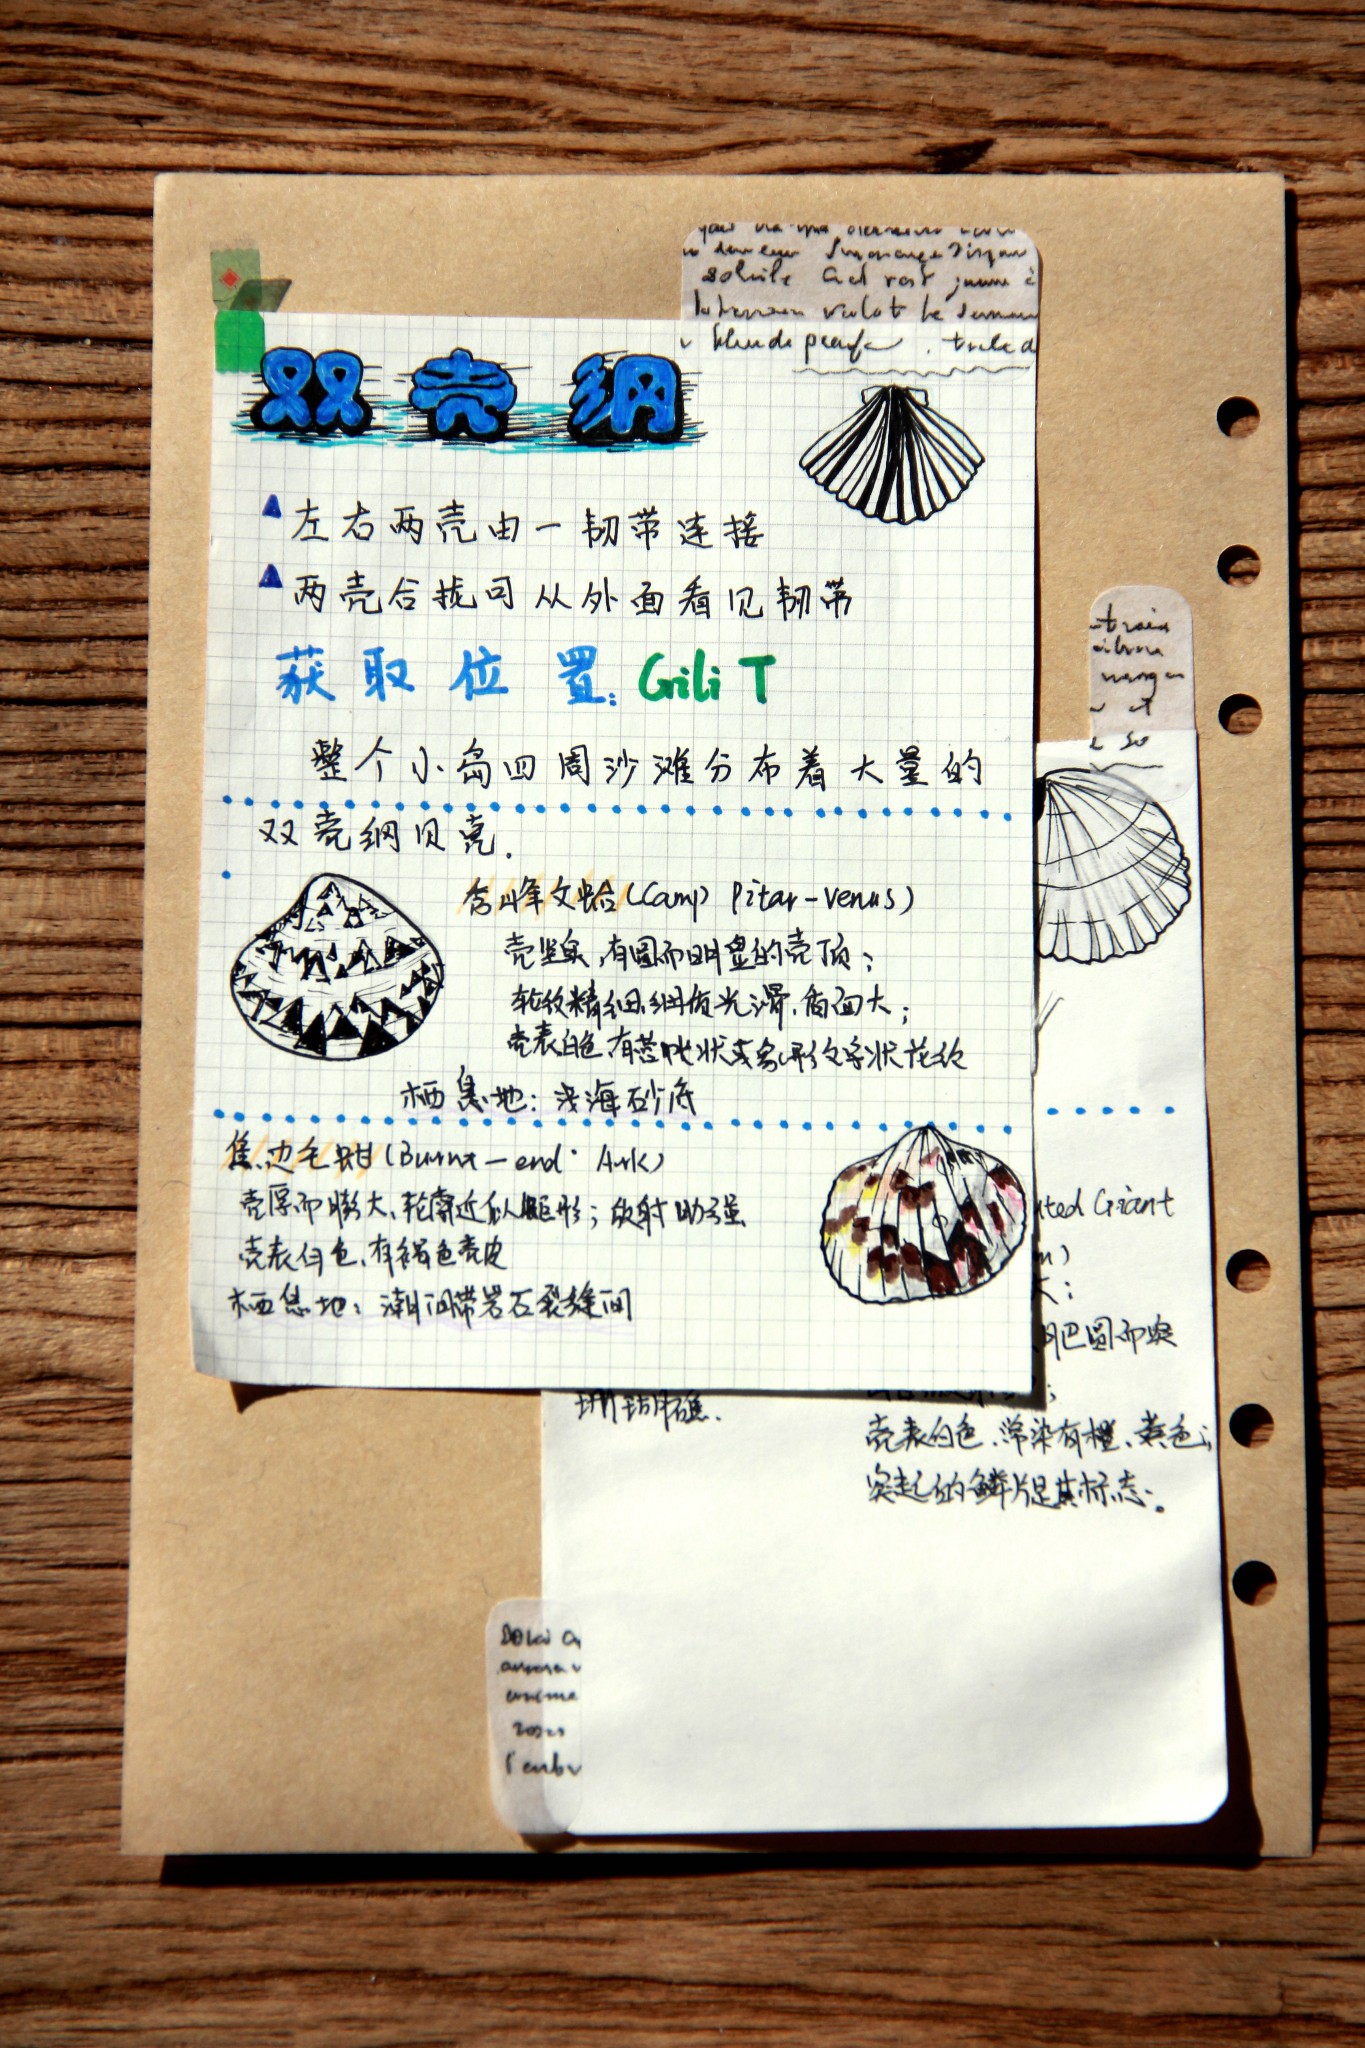 双壳纲
左右两壳由一韧带连接
两壳合拢可从外面看见韧带
获取位置: Gili T
整个小岛四周沙滩分布着大量的
双壳纲贝壳.
秀峰文蛤(Camp Pitar-Venus)
壳坚实,有圆而明显的壳顶;
轮纹精细,细质光滑,盾面大;
壳表白色,有苔状或象形文字状花纹
栖息地: 浅海砂底
焦边毛蚶(Burnt-end Ark)
壳厚而膨大,轮廓近似矩形;放射肋强
壳表白色,有褐色壳皮
栖息地: 潮间带岩石裂缝间
Giant
圆而
珊瑚礁.
壳表白色,常染有橙、黄色;
突起的鳞片是其标志.